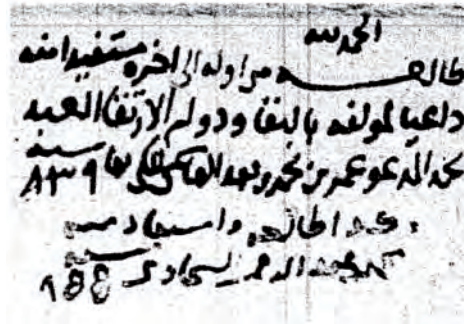 الحمد لله
طالعه من اوله الى اخره مستفيدا منه
داعيا لمولفه بالبقا ودوام الارتقا العبد
محمد المدعو عمر بن محمد بن فهد الهاشمي المكي سنة ٨٣٩
واستفاد منه
محمد بن عبد الرحمن السخاوي سنة